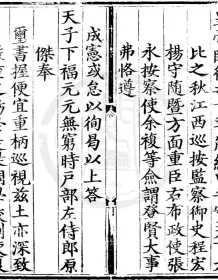 比之秋江西巡按監察御史程宏
楊守隨暨方面重臣右布政使張
永按察使余複等僉謂登賢大事
弗恪遵
成憲或怠以徇曷以上答
天子下福元元無窮時戶部左侍郎原
傑奉
璽書握便宜重柄巡視茲土亦深致